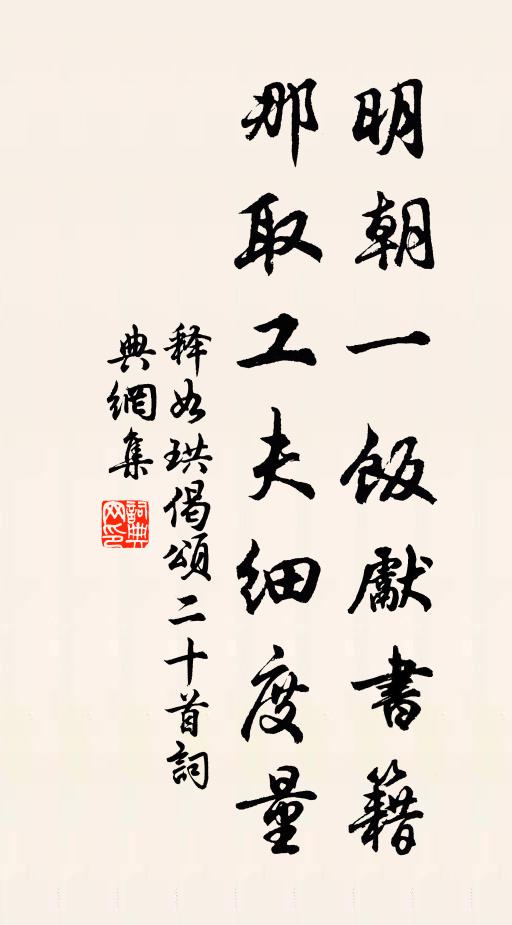 明朝一飯獻書籍
那取工夫細度量
释如珙偈頌二十首詞
典網集
詞典网印